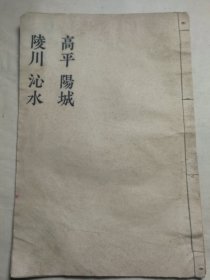 高平 陽城
陵川 沁水